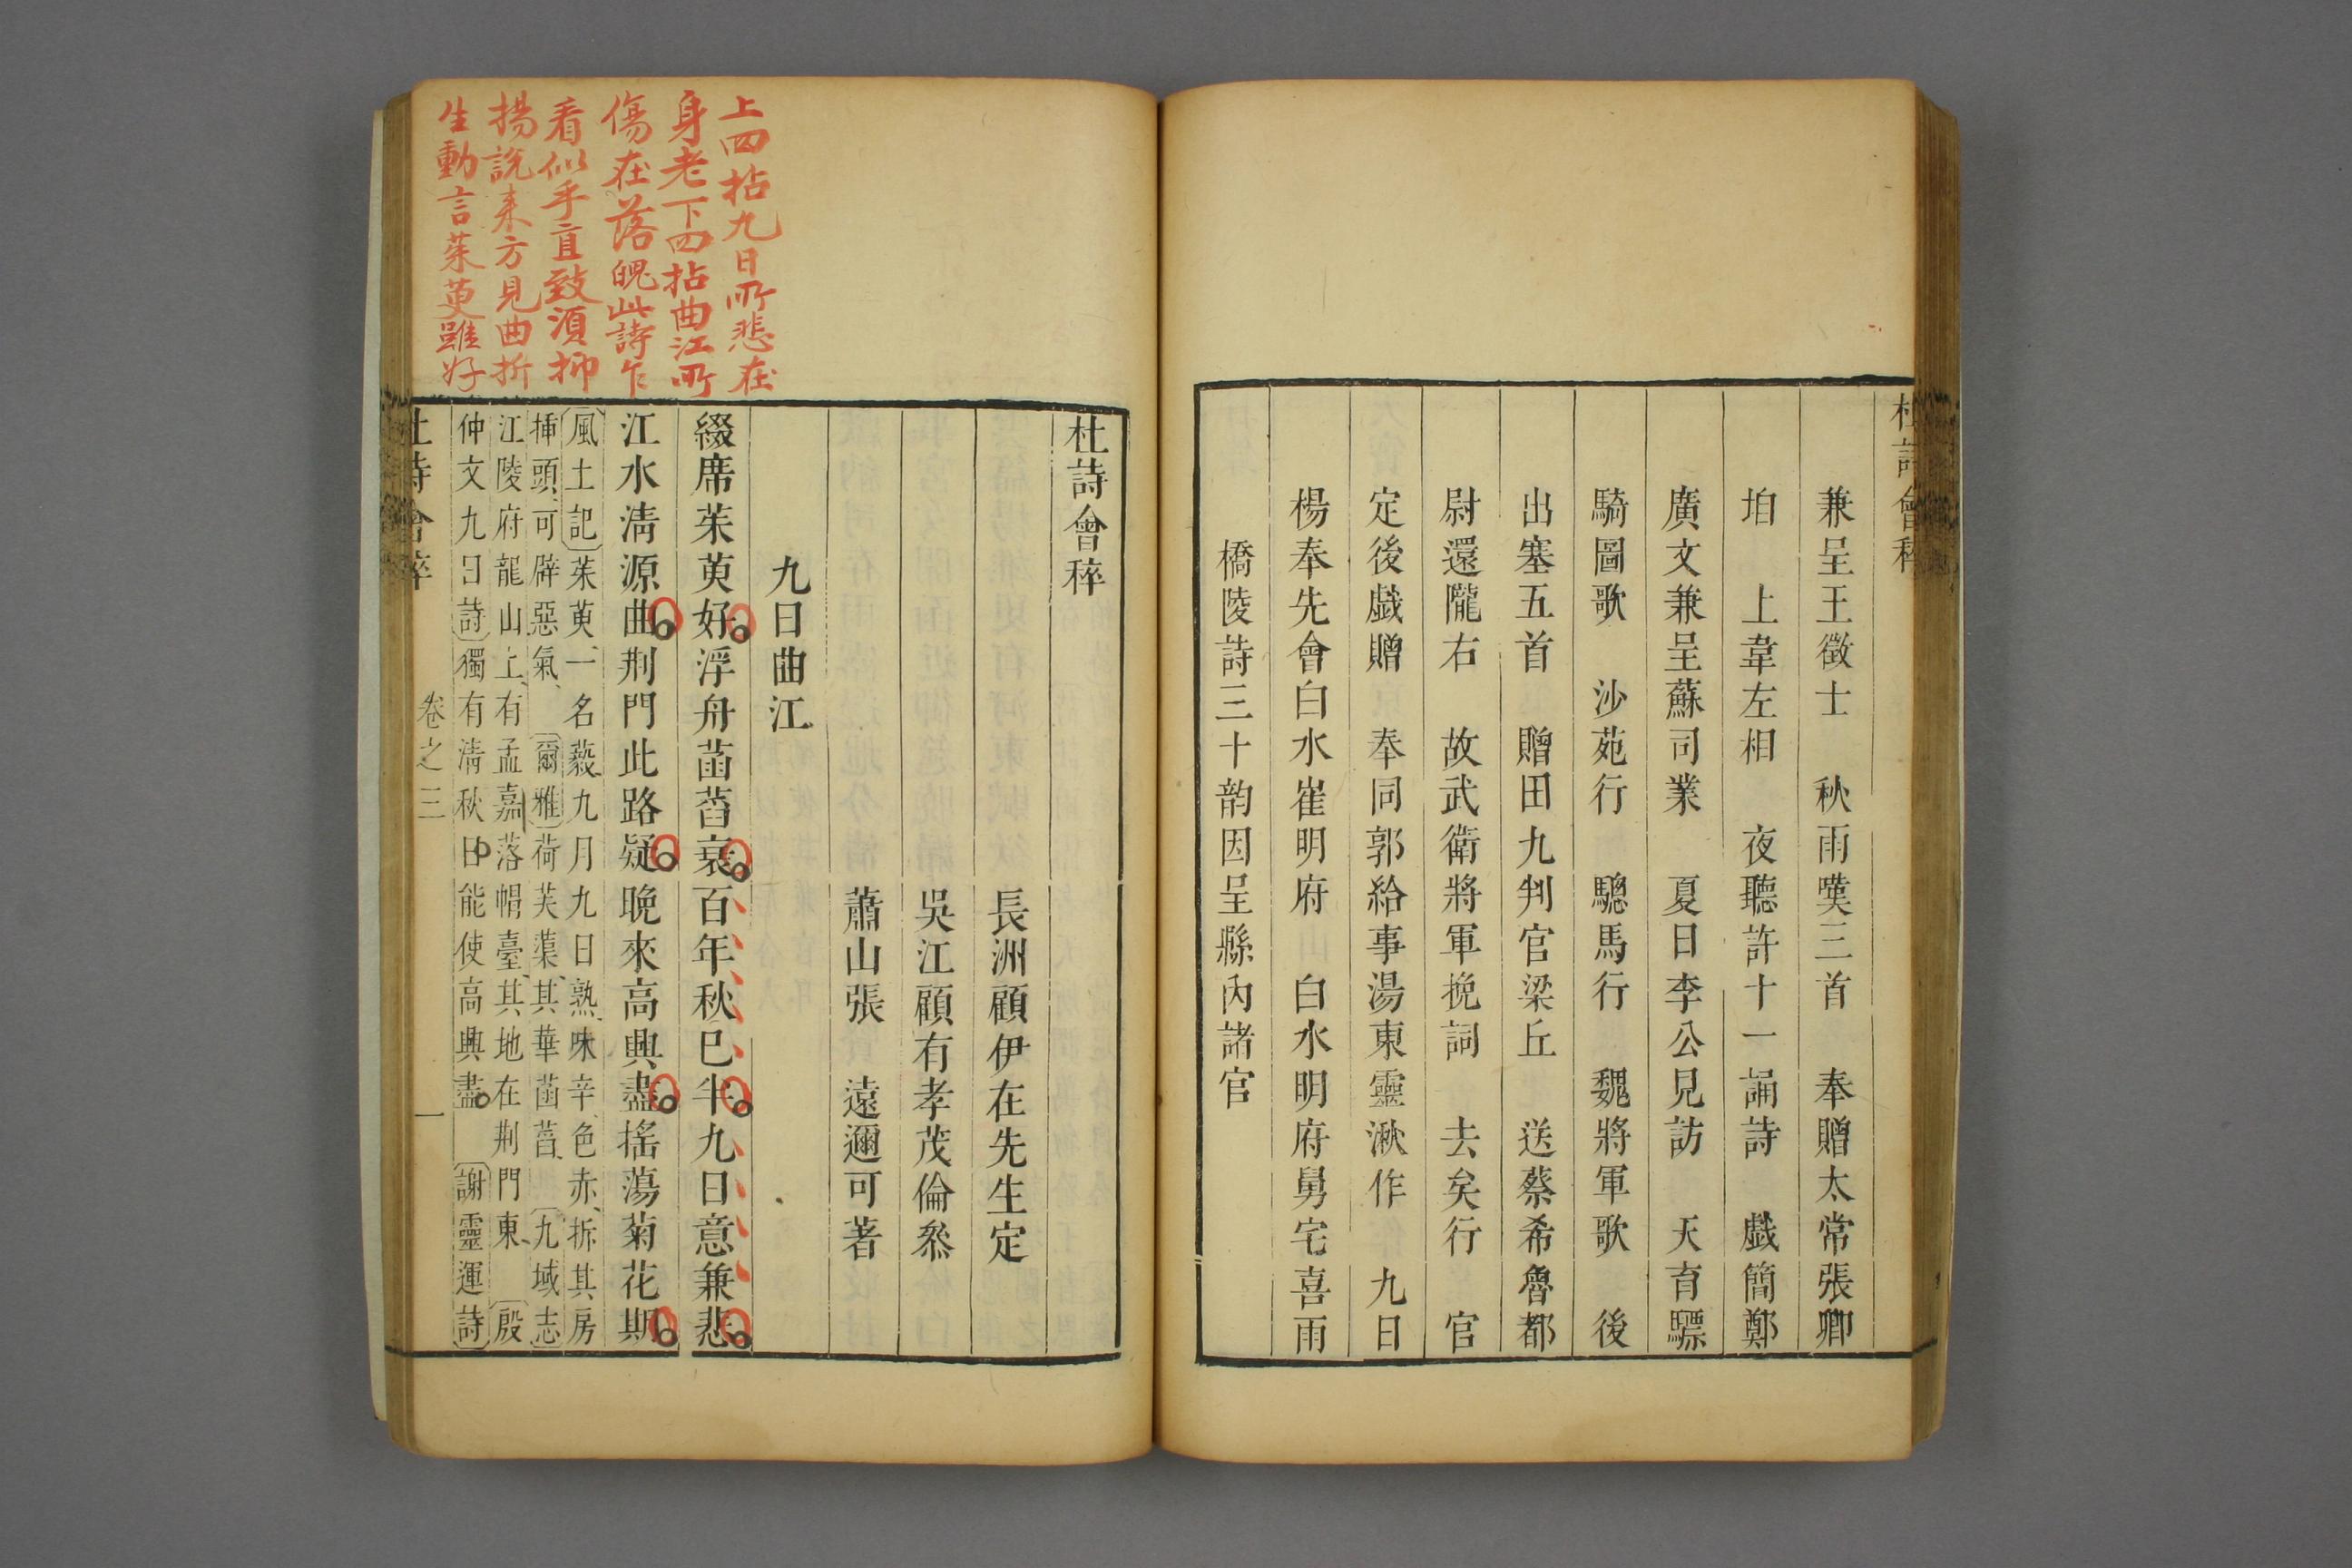 杜詩會稡
兼呈王徵士　秋雨嘆三首　奉贈太常張卿
垍　上韋左相　夜聽許十一誦詩　戲簡鄭
廣文兼呈蘇司業　夏日李公見訪　天育驃
騎圖歌　沙苑行　驄馬行　魏將軍歌　後
出塞五首　贈田九判官梁丘　送蔡希魯都
尉還隴右　故武衛將軍挽詞　去矣行　官
定後戲贈　奉同郭給事湯東靈湫作　九日
楊奉先會白水崔明府　白水明府舅宅喜雨
橋陵詩三十韵因呈縣內諸官
上四拈九日所悲在
身老下四拈曲江所
傷在落魄此詩乍
看似乎直致須抑
揚說来方見曲折
生動言茱萸雖好
杜詩會稡
長洲顧伊在先生定
吳江顧有孝茂倫叅
蕭山張　遠邇可著
九日曲江
綴席茱萸好浮舟菡萏衰百年秋已半九日意兼悲
江水清源曲荆門此路疑晚來高興盡搖蕩菊花期
風土記茱萸一名藙九月九日熟味辛色赤拆其房
挿頭可辟惡氣　爾雅荷芙蕖其華菡萏　九域志
江陵府龍山上有孟嘉落帽臺其地在荆門東　殷
仲文九日詩獨有清秋日能使高興盡　謝靈運詩
杜詩會稡　卷之三　一